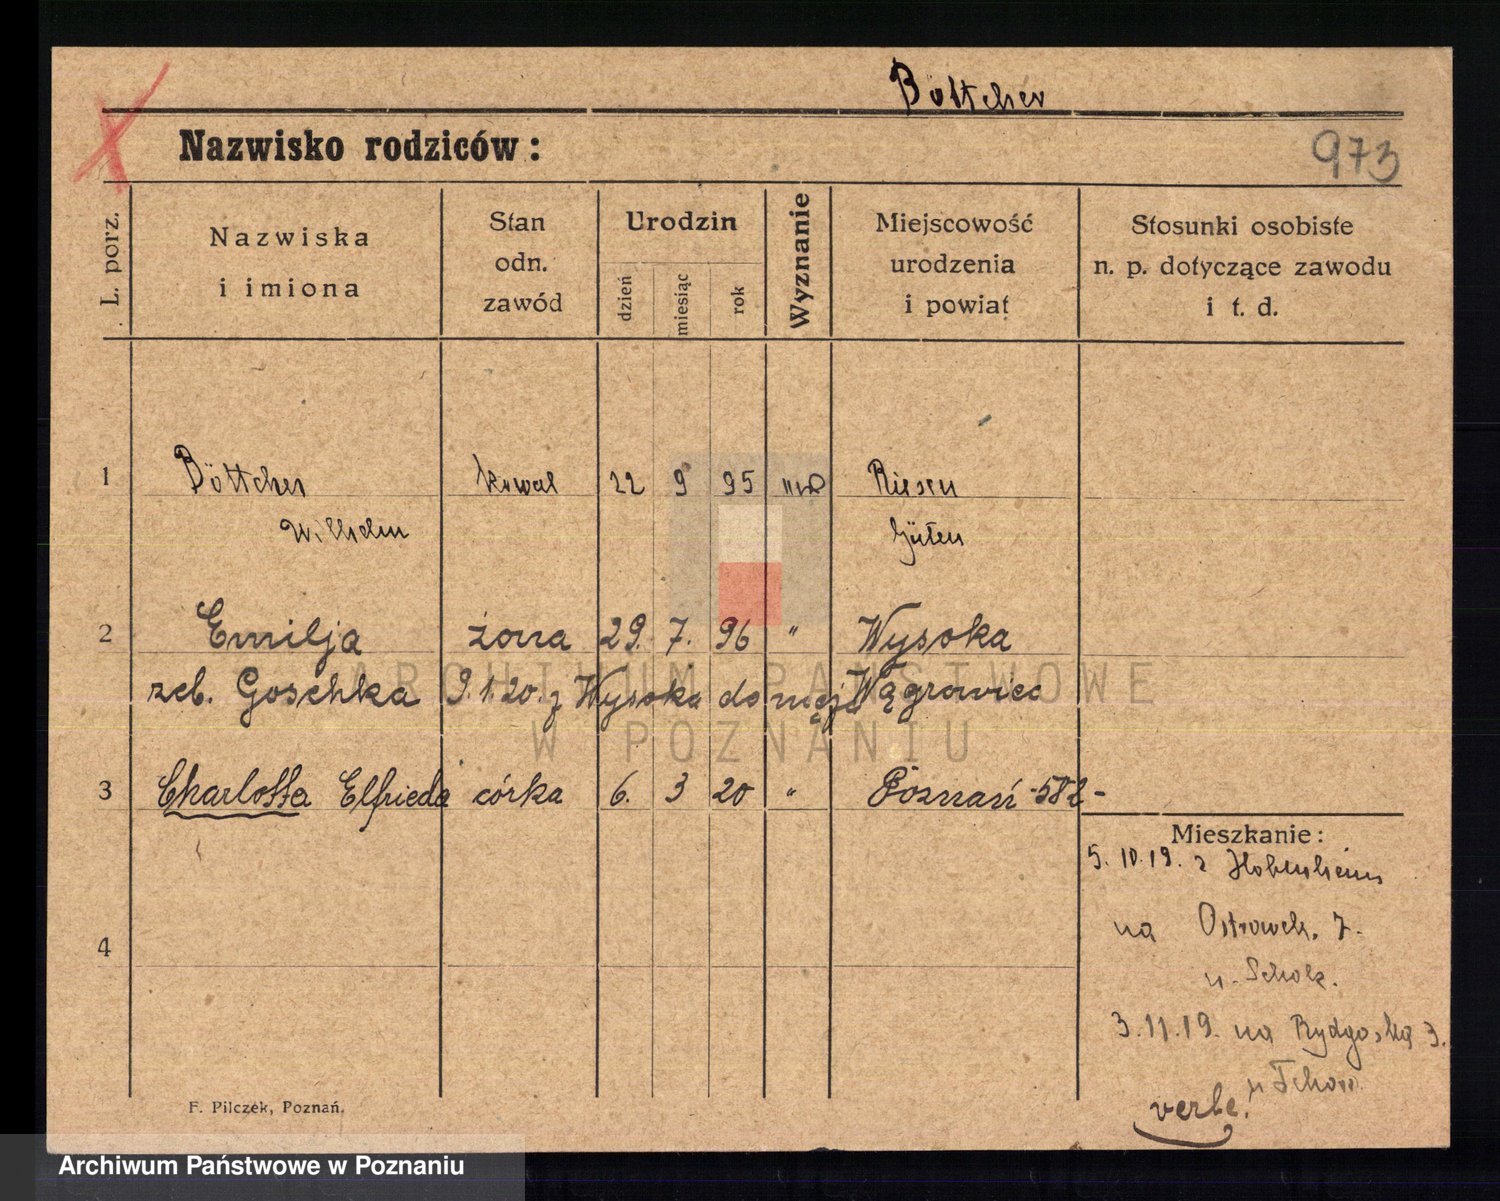 Böttcher
Nazwisko rodziców:
973
L. porz.
Nazwiska
i imiona
Stan
odn.
zawód
Urodzin
dzień
miesiąc
rok
Wyznanie
Miejscowość
urodzenia
i powiat
Stosunki osobiste
n. p. dotyczące zawodu
i t. d.
1 Böttcher kowal 22 9 95
Wilhelm
2 Emilja żona 29. 7. 96 " Wysoka
zeb. Goschka 9.1.20. z Wysoka do męża Wągrowiec
3 Charlotta Elfrieda córka 6. 3 20 " Poznań -582-
4
Mieszkanie:
5.10.19. z Hohenheim
na Ostrowek. 7.
u. Scholz.
3.11.19. na Bydgoską 3.
verte!
F. Pilczek, Poznań.
ARCHIWUM PAŃSTWOWE
W POZNANIU
Archiwum Państwowe w Poznaniu